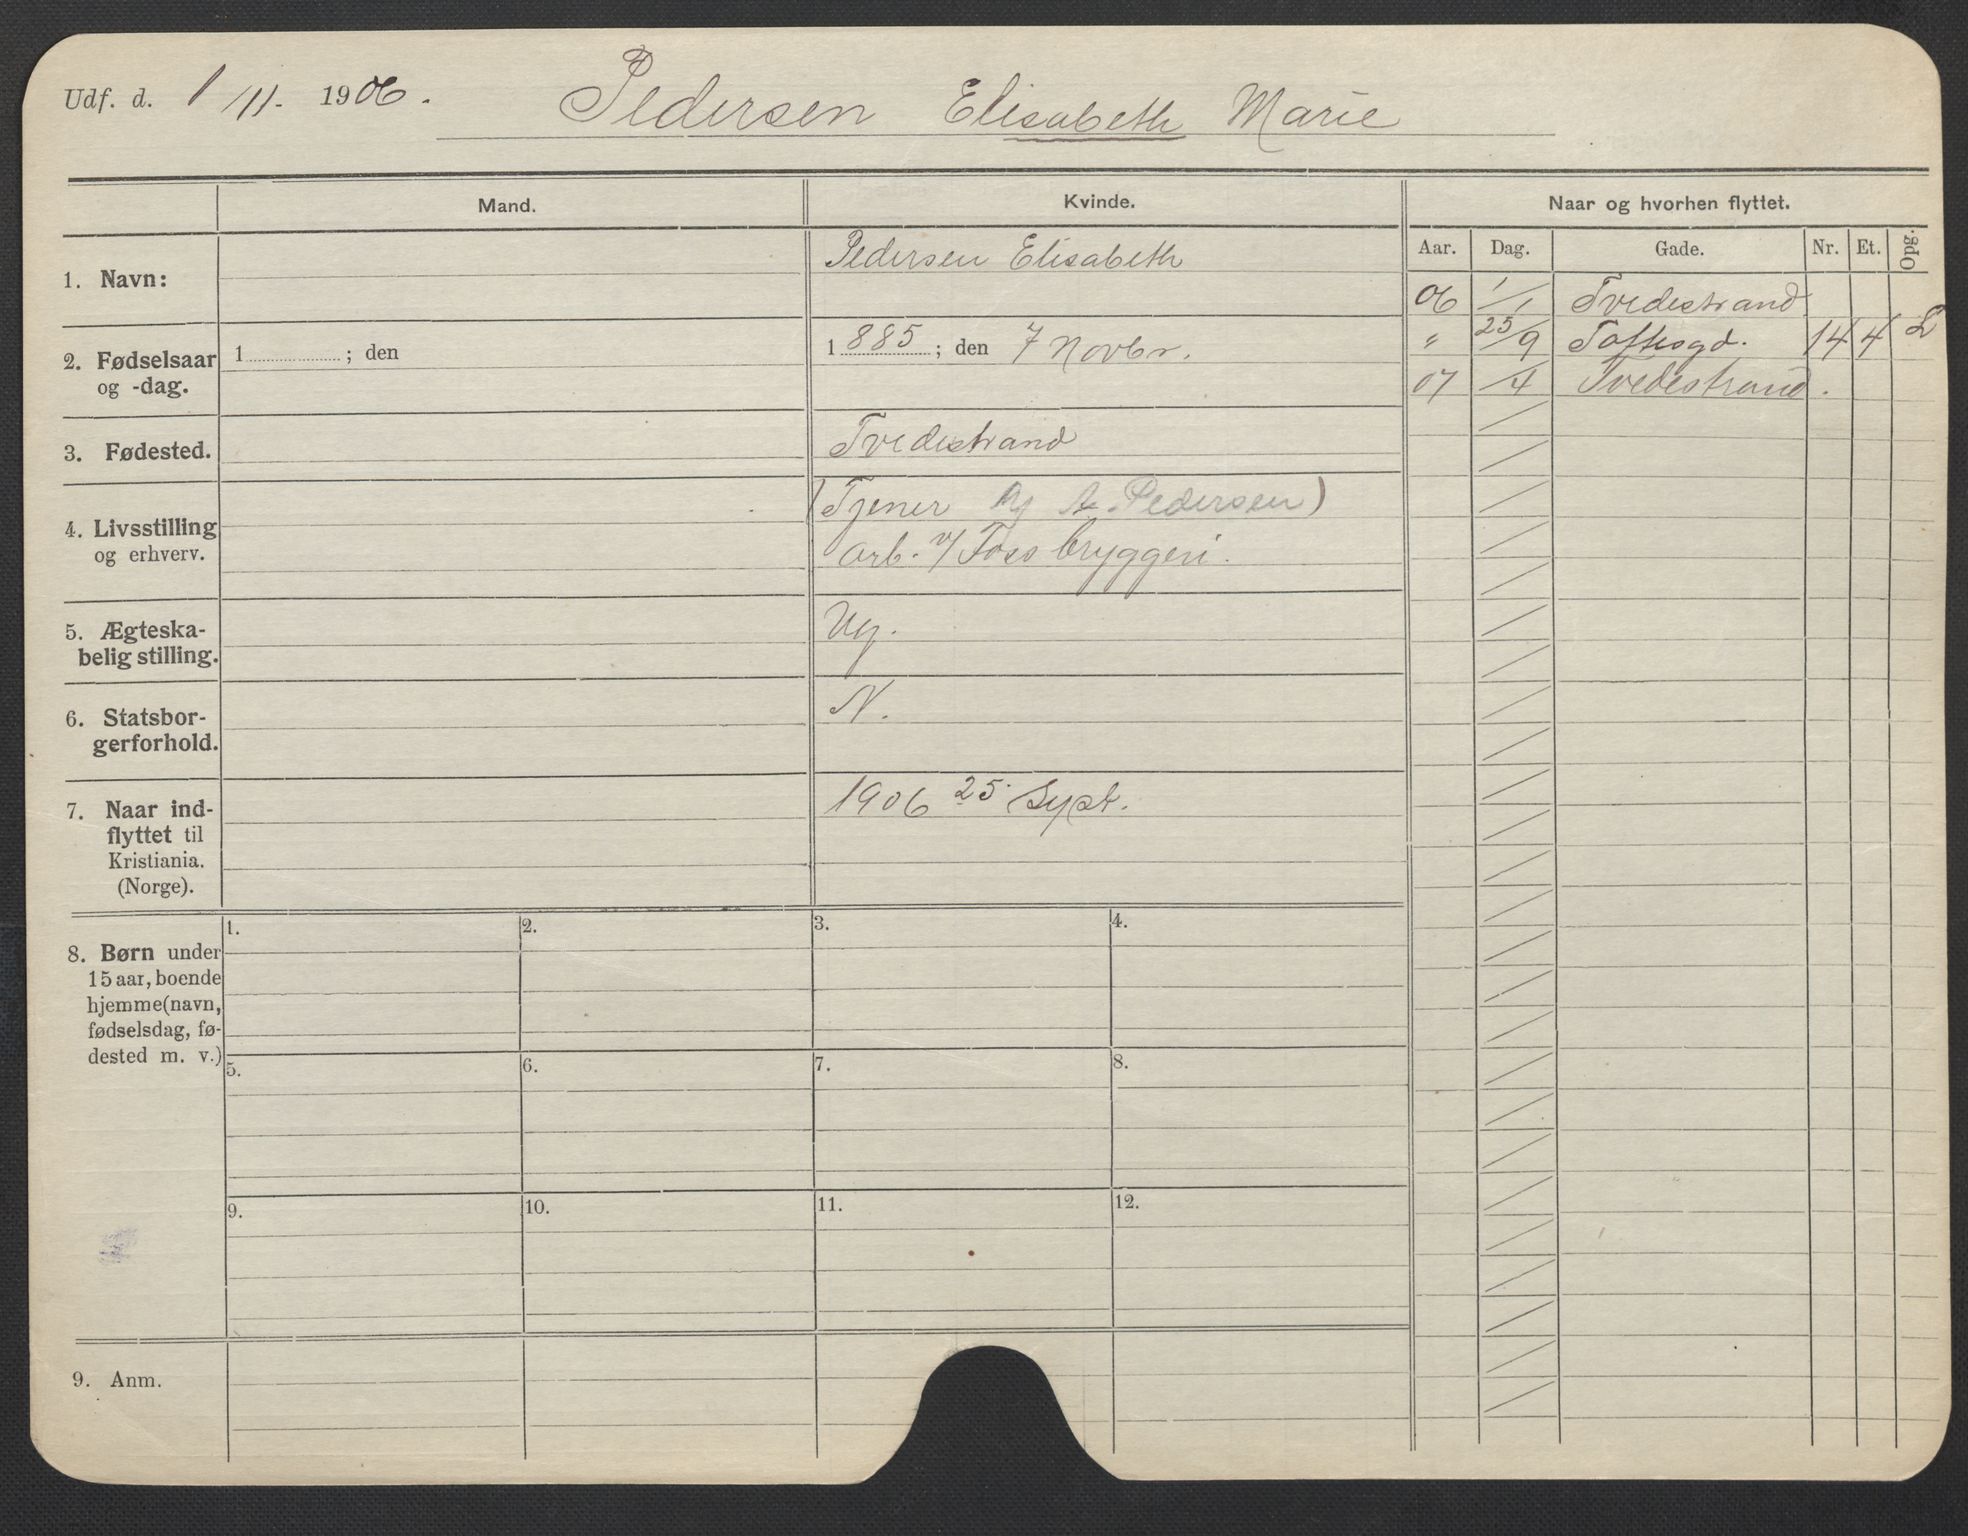 Udf. d. 1/11. 1906. Pedersen Elisabeth Marie
Mand. Kvinde. Naar og hvorhen flyttet.
Aar. Dag. Gade. Nr. Et. Opg.
1. Navn: Pedersen Elisabeth
06 1/1 Tvedestrand
2. Fødselsaar og -dag. 1 ; den 1885; den 7 Novbr.
" 25/9 Toftesgd. 14 4
07 /4 Tvedestrand.
3. Fødested. Tvedestrand
4. Livsstilling og erhverv. (Tjener Pedersen)
arb. v/ Foss bryggeri.
5. Ægteska-
belig stilling. Ug.
6. Statsbor-
gerforhold. N.
7. Naar ind-
flyttet til
Kristiania.
(Norge). 1906 25. Sept.
8. Børn under
15 aar, boende
hjemme (navn,
fødselsdag, fø-
dested m. v.)
1. 2. 3. 4.
5. 6. 7. 8.
9. 10. 11. 12.
9. Anm.